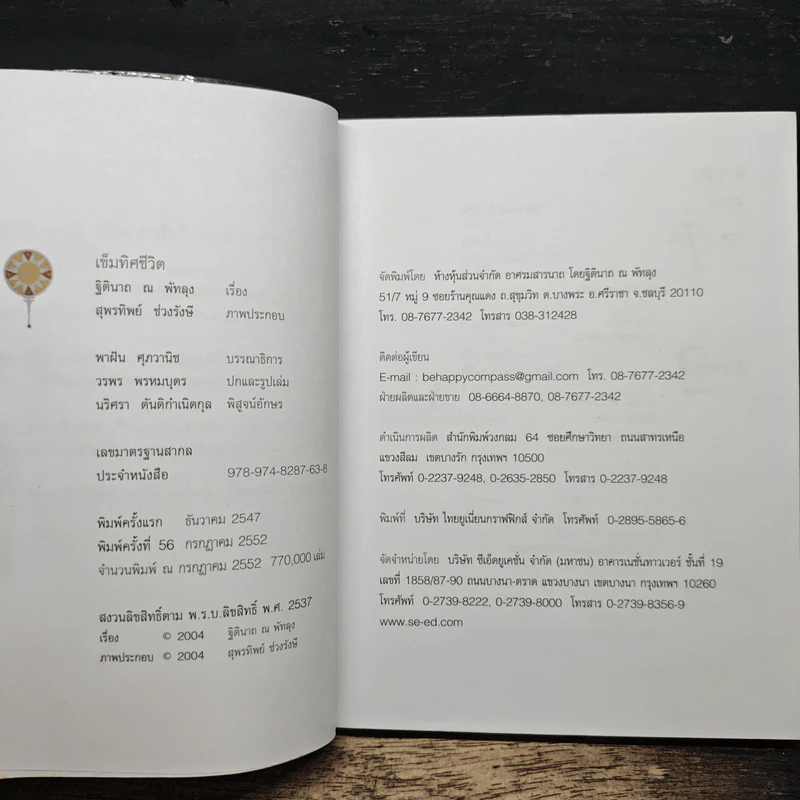 เข็มทิศชีวิต
ฐิตินาถ ณ พัทลุง เรื่อง
สุพรทิพย์ ช่วงรังษี ภาพประกอบ
พาฝัน ศุภวานิช บรรณาธิการ
วรพร พรหมบุตร ปกและรูปเล่ม
นริศรา ตันติกำเนิดกุล พิสูจน์อักษร
เลขมาตรฐานสากล
ประจำหนังสือ 978-974-8287-63-8
พิมพ์ครั้งแรก ธันวาคม 2547
พิมพ์ครั้งที่ 56 กรกฎาคม 2552
จำนวนพิมพ์ ณ กรกฎาคม 2552 770,000 เล่ม
สงวนลิขสิทธิ์ตาม พ.ร.บ.ลิขสิทธิ์ พ.ศ. 2537
เรื่อง © 2004 ฐิตินาถ ณ พัทลุง
ภาพประกอบ © 2004 สุพรทิพย์ ช่วงรังษี
จัดพิมพ์โดย ห้างหุ้นส่วนจำกัด อาศรมสารนาถ โดยฐิตินาถ ณ พัทลุง
51/7 หมู่ 9 ซอยร้านคุณแดง ถ.สุขุมวิท ต.บางพระ อ.ศรีราชา จ.ชลบุรี 20110
โทร. 08-7677-2342 โทรสาร 038-312428
ติดต่อผู้เขียน
E-mail : behappycompass@gmail.com โทร. 08-7677-2342
ฝ่ายผลิตและฝ่ายขาย 08-6664-8870, 08-7677-2342
ดำเนินการผลิต สำนักพิมพ์วงกลม 64 ซอยศึกษาวิทยา ถนนสาทรเหนือ
แขวงสีลม เขตบางรัก กรุงเทพฯ 10500
โทรศัพท์ 0-2237-9248, 0-2635-2850 โทรสาร 0-2237-9248
พิมพ์ที่ บริษัท ไทยยูเนี่ยนกราฟฟิกส์ จำกัด โทรศัพท์ 0-2895-5865-6
จัดจำหน่ายโดย บริษัท ซีเอ็ดยูเคชั่น จำกัด (มหาชน) อาคารเนชั่นทาวเวอร์ ชั้นที่ 19
เลขที่ 1858/87-90 ถนนบางนา-ตราด แขวงบางนา เขตบางนา กรุงเทพฯ 10260
โทรศัพท์ 0-2739-8222, 0-2739-8000 โทรสาร 0-2739-8356-9
www.se-ed.com